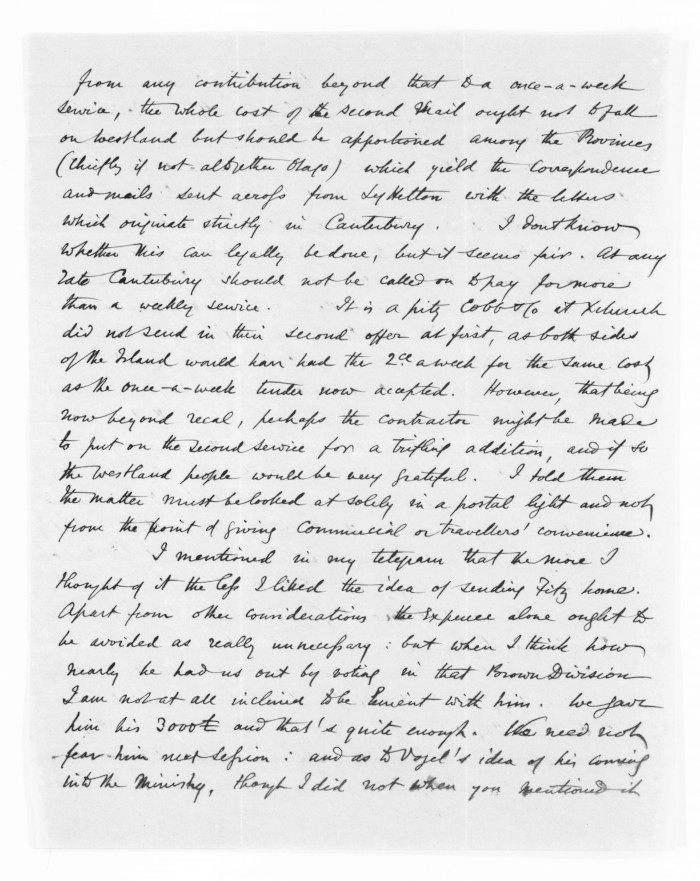 from any contribution beyond that to a once-a-week
service, the whole cost of the second Mail ought not to fall
on Westland but should be apportioned among the Provinces
(chiefly if not altogether Otago) which yield the correspondence
and mails sent across from Lyttelton with the letters
which originate strictly in Canterbury. I dont know
whether this can legally be done, but it seems fair. At any
rate Canterbury should not be called on to pay for more
than a weekly service. It is a pity Cobb & Co at Xchurch
did not send in their second offer at first, as both sides
of the Island would have had the 2ce a week for the same cost
as the once-a-week tender now accepted. However, that being
now beyond recal, perhaps the contractor might be made
to put on the second service for a trifling addition, and if so
the Westland people would be very grateful. I told them
the matter must be looked at solely in a postal light and not
from the point of giving Commercial or travellers' convenience.
I mentioned in my telegram that the more I
thought of it the less I liked the idea of sending Fitz home.
Apart from other considerations the Expence alone ought to
be avoided as really unnecessary: but when I think how
nearly he had us out by voting in that Brown Division
I am not at all inclined to be lenient with him. We gave
him his 3000£ and that's quite enough. We need not
fear him next session: and as to Vogel's idea of his coming
into the Ministry, though I did not when you mentioned it